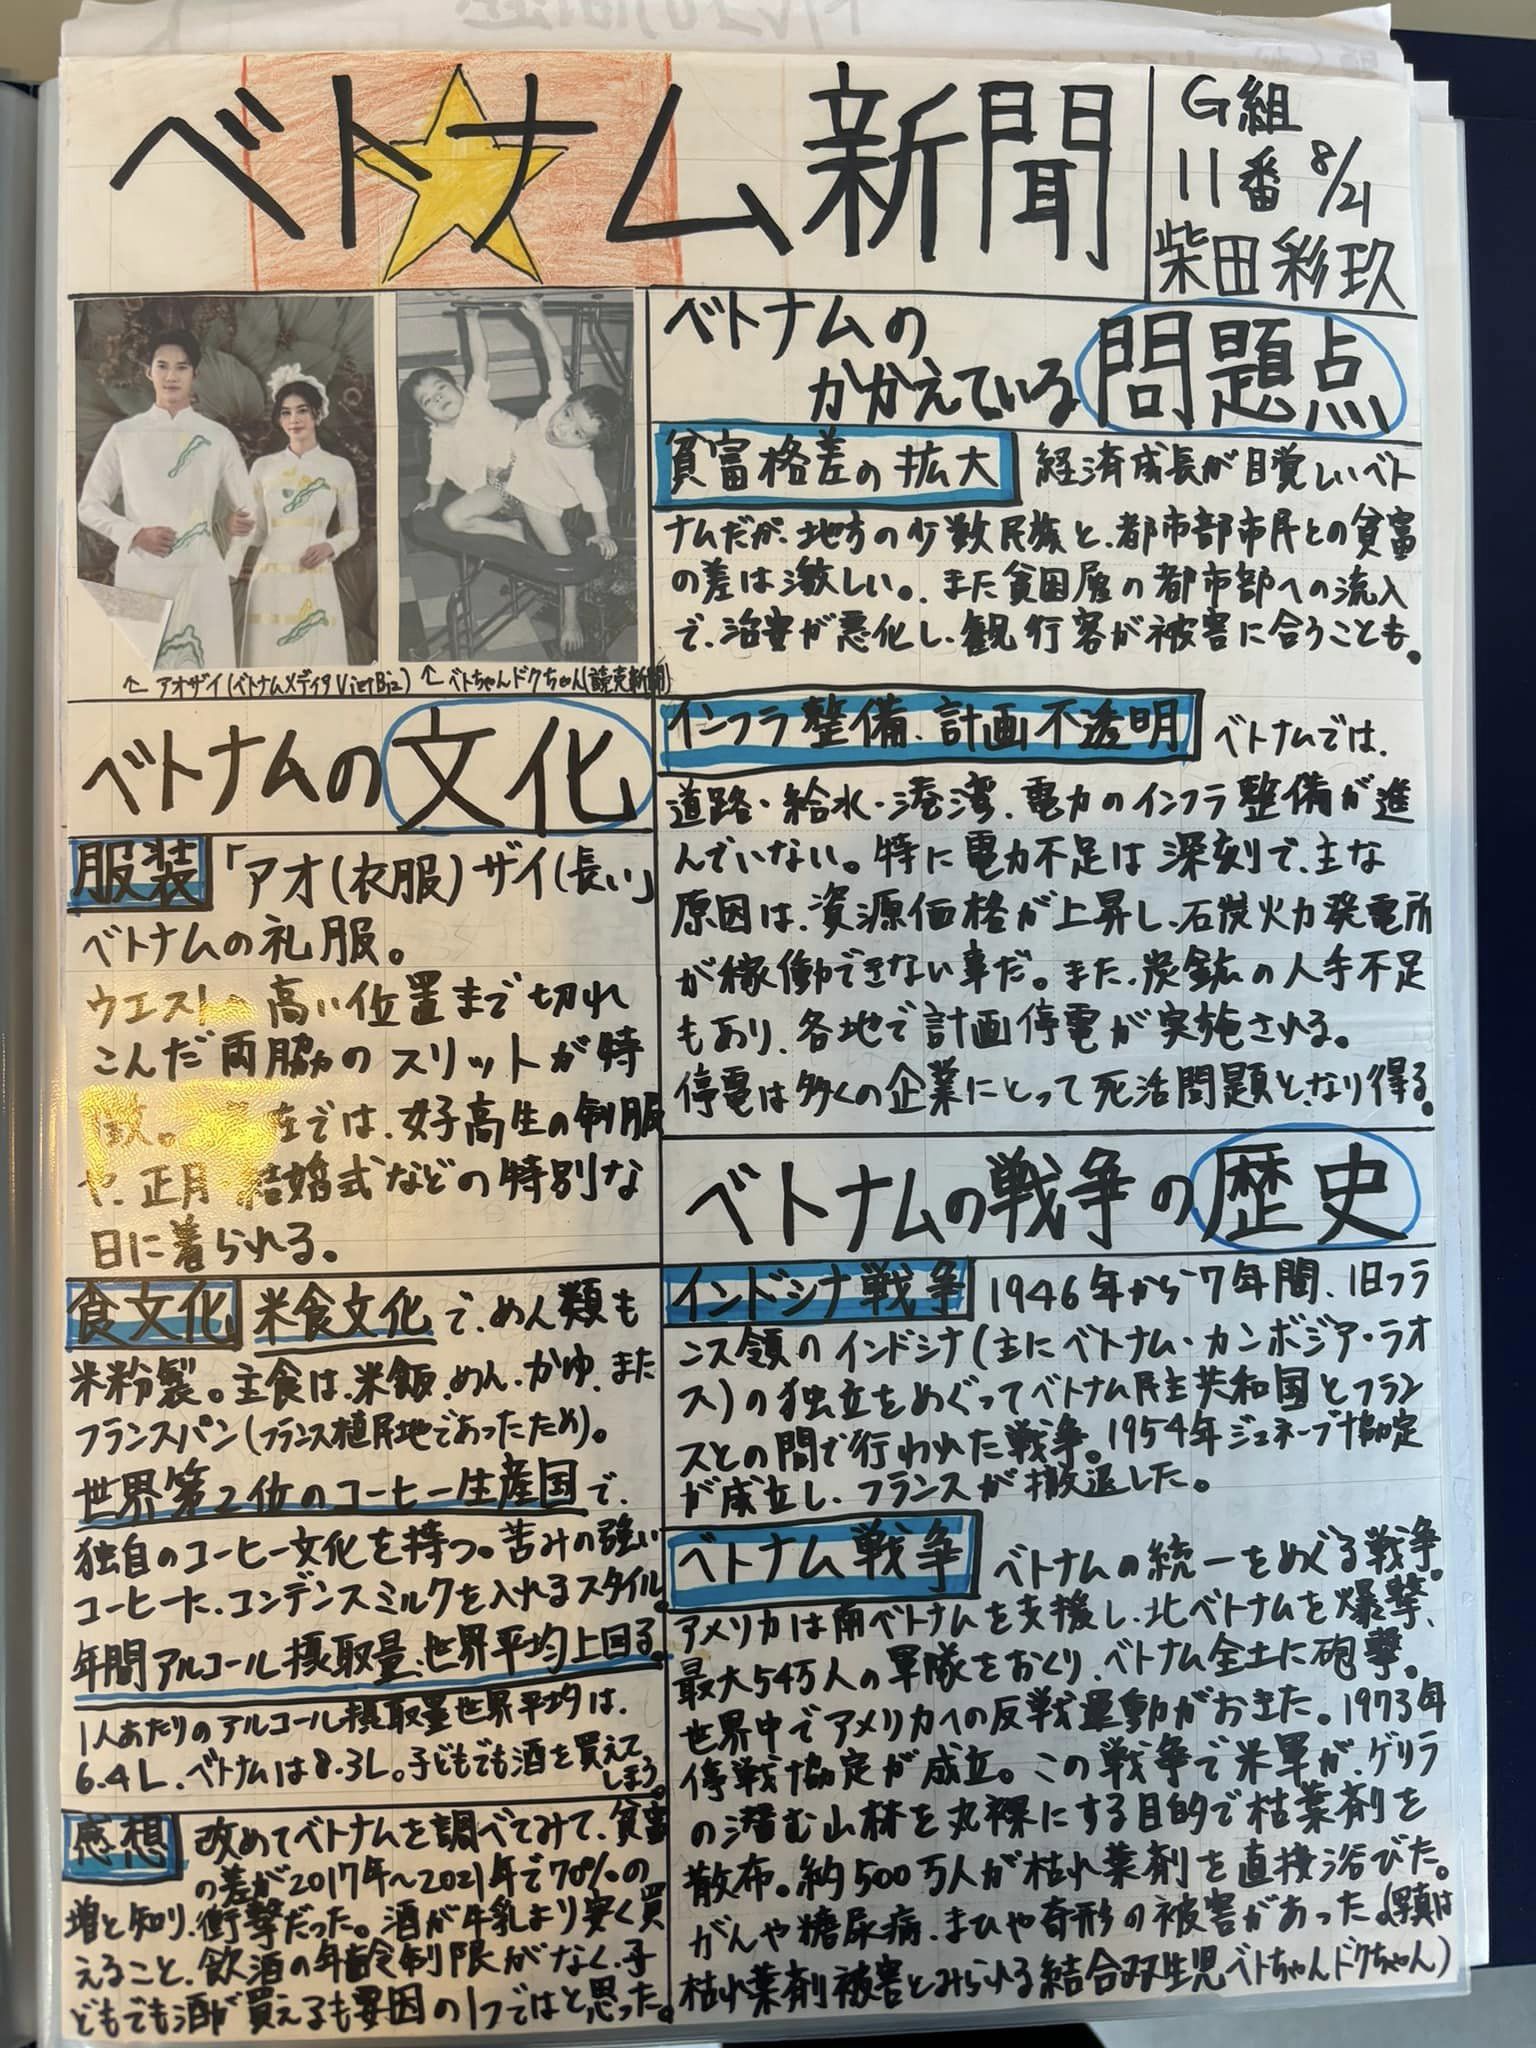 ベトナム新聞
G組
11番 8/21
柴田彩玖
←アオザイ(ベトナムメディアVietBiz)
←ベトちゃんドクちゃん(読売新聞)
ベトナムの文化
服装「アオ(衣服)ザイ(長い)」
ベトナムの礼服。
ウエスト 高い位置まで切れ
こんだ両脇のスリットが特
徴。 在では、女子高生の制服
や、正月 結婚式などの特別な
日に着られる。
食文化 米食文化で、めん類も
米粉製。主食は、米飯、めん、かゆ、また
フランスパン(フランス植民地であったため)。
世界第2位のコーヒー生産国で、
独自のコーヒー文化を持つ。苦みの強い
コーヒーに、コンデンスミルクを入れるスタイル。
年間アルコール摂取量、世界平均上回る。
1人あたりのアルコール摂取量世界平均は、
6.4L、ベトナムは8.3L。子どもでも酒を買えて
しまう。
感想 改めてベトナムを調べてみて、貧富
の差が2017年〜2021年で70%の
増と知り、衝撃だった。酒が牛乳より安く買
えること、飲酒の年齢制限がなく、子
どもでも酒が買えるも要因の1つではと思った。
ベトナムの
かかえている問題点
貧富格差の拡大 経済成長が目覚しいベト
ナムだが、地方の少数民族と、都市部市民との貧富
の差は激しい。また貧困層の都市部への流入
で、治安が悪化し、観行客が被害に合うことも。
インフラ整備、計画不透明 ベトナムでは、
道路・給水・港湾、電力のインフラ整備が進
んでいない。特に電力不足は深刻で、主な
原因は、資源価格が上昇し、石炭火力発電所
が稼働できない事だ。また、炭鉱の人手不足
もあり、各地で計画停電が実施される。
停電は多くの企業にとって死活問題となり得る。
ベトナムの戦争の歴史
インドシナ戦争 1946年から7年間、旧フラ
ンス領のインドシナ(主にベトナム・カンボジア・ラオ
ス)の独立をめぐってベトナム民主共和国とフラン
スとの間で行われた戦争。1954年ジュネーブ協定
が成立し、フランスが撤退した。
ベトナム戦争 ベトナムの統一をめぐる戦争。
アメリカは南ベトナムを支援し、北ベトナムを爆撃、
最大54万人の軍隊をおくり、ベトナム全土に砲撃。
世界中でアメリカへの反戦運動がおきた。1973年
停戦協定が成立。この戦争で米軍が、ゲリラ
の潜む山林を丸裸にする目的で枯葉剤を
散布。約500万人が枯れ葉剤を直接浴びた。
がんや糖尿病、まひや奇形の被害があった。(写真は
枯れ葉剤被害とみられる結合双生児ベトちゃんドクちゃん)